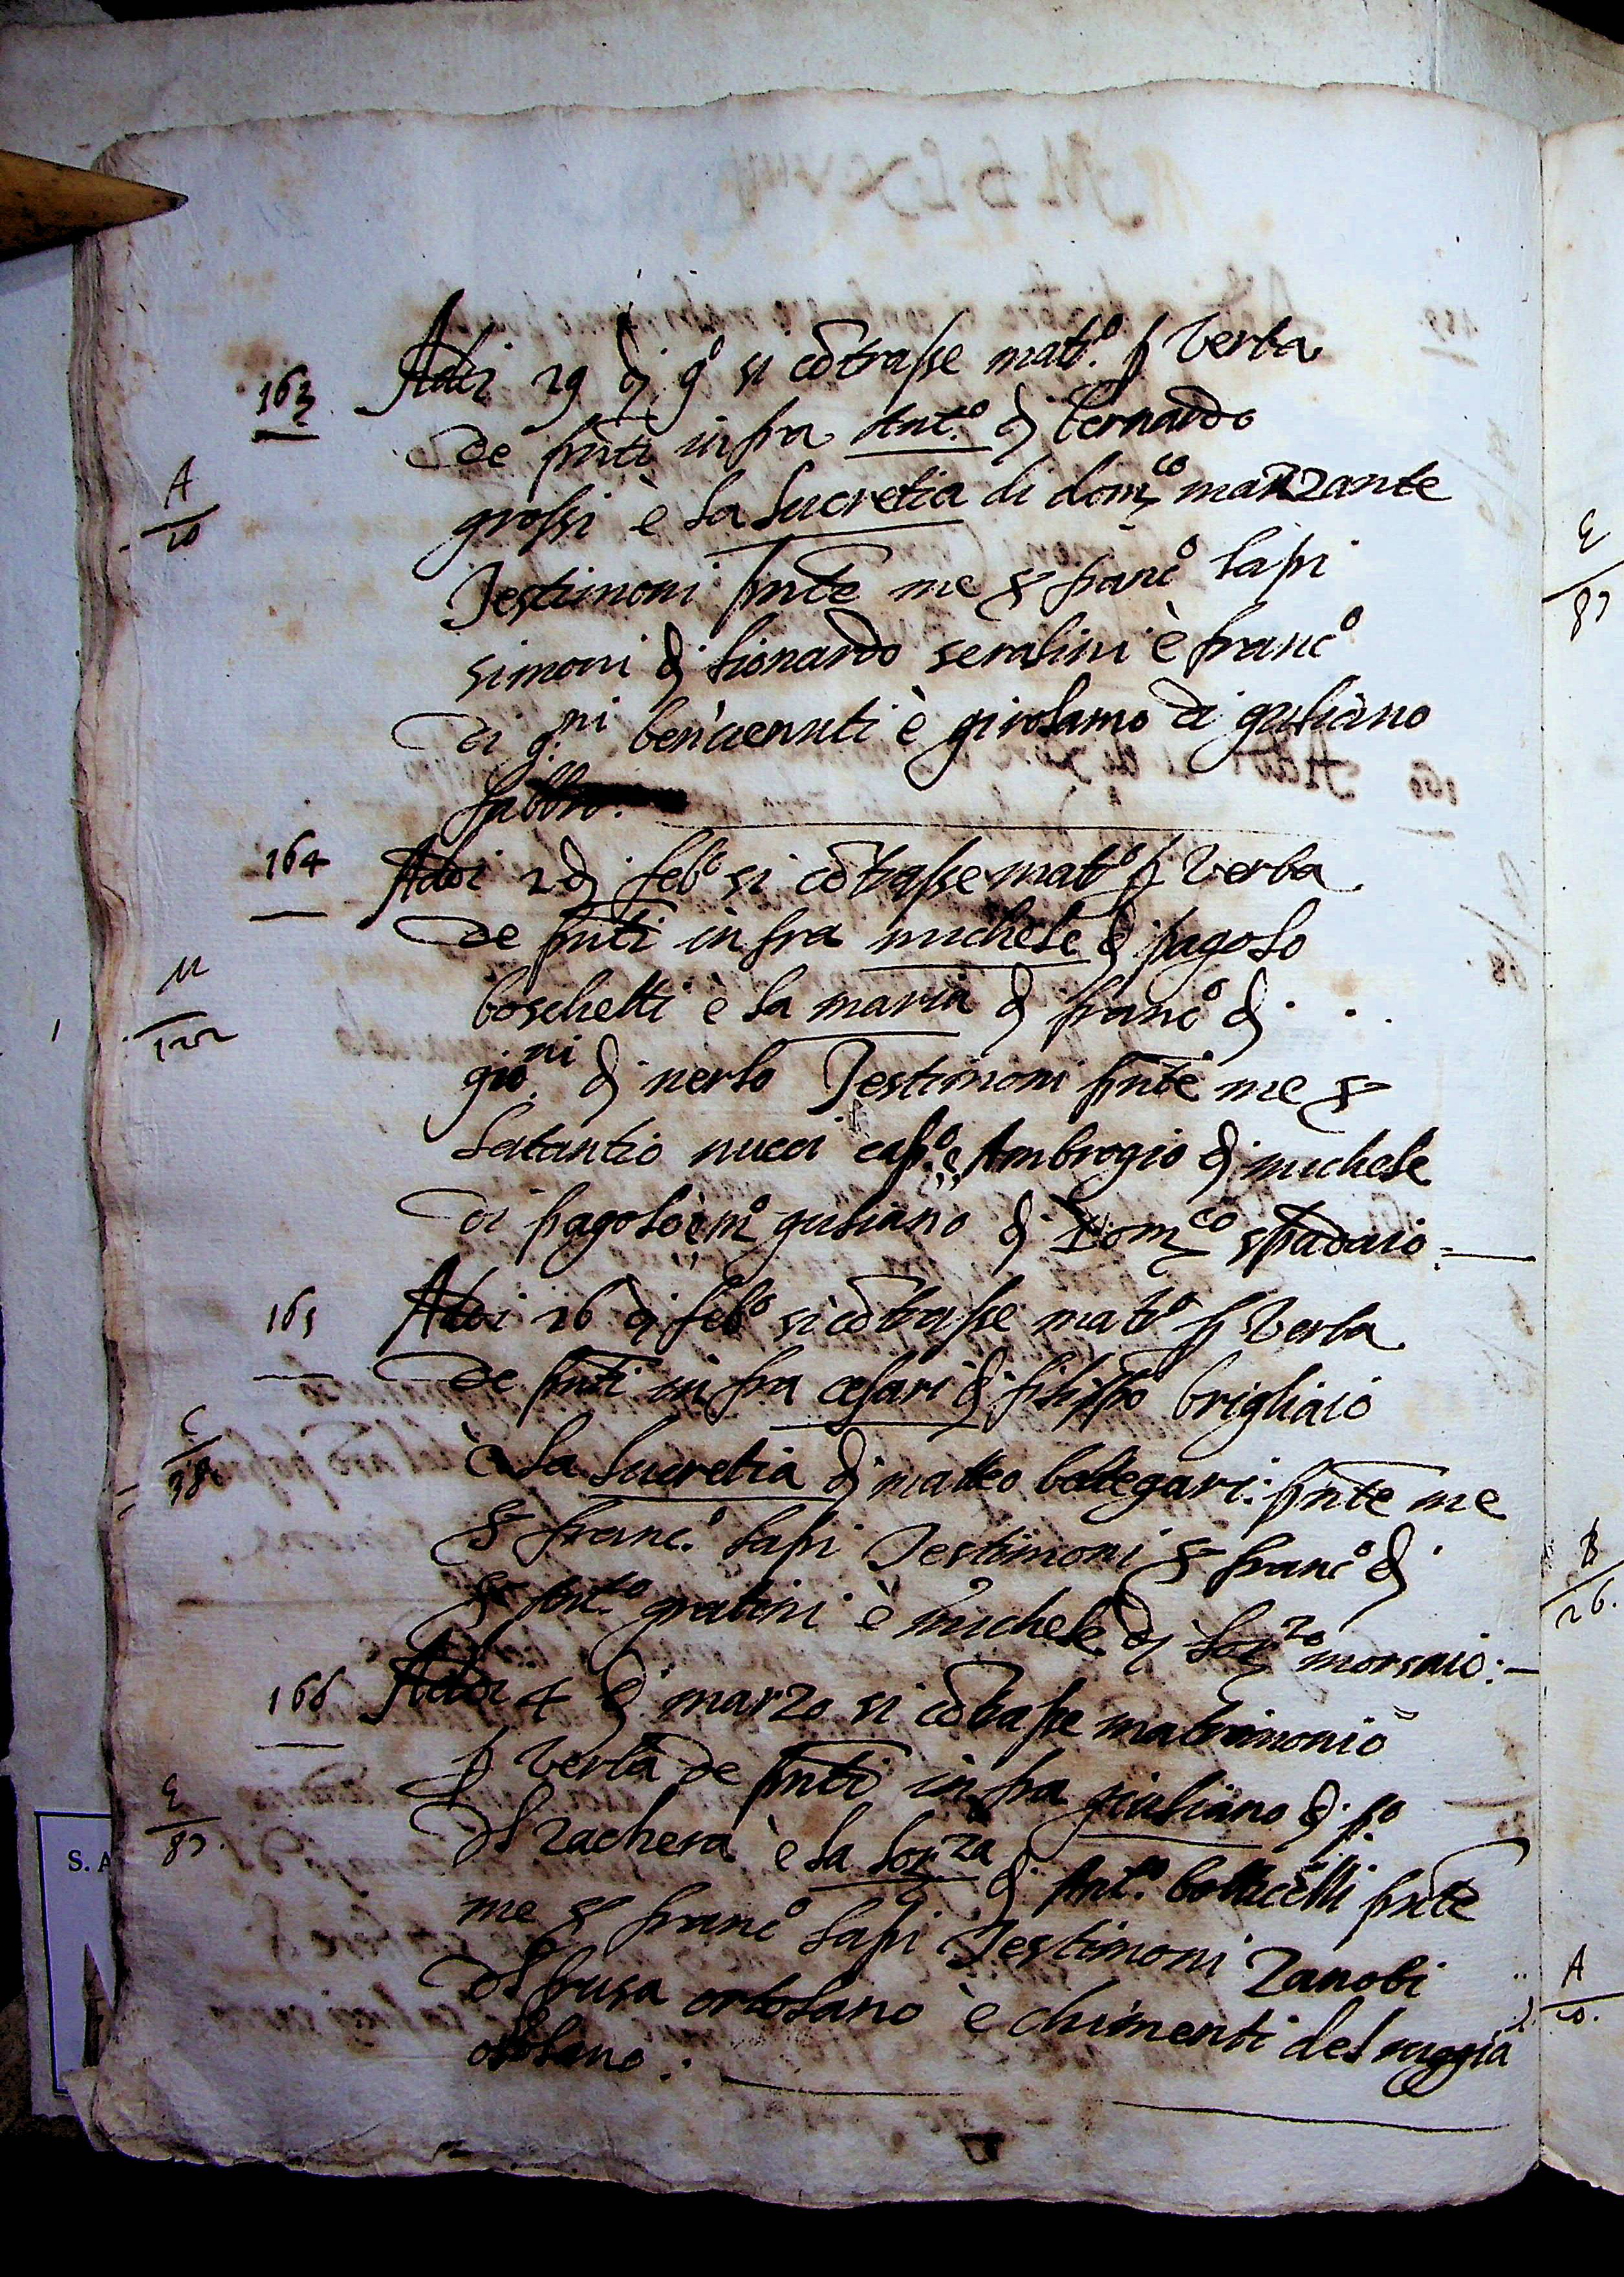 163 Adi 29 di g.º si cõtrasse mat.º p verba
de pñti infra Ant.º di bernardo
A
10
grossi è la lucretia di dom.co manzante
Testimoni pñte me ser franc.º lapi
simoni di lionardo serafini è franc.º
di g.ni ben'uenuti è girolamo di guliano
fabbro.
164 Adi 2 di feb.º si cõtrasse mat.º p verba
de pñti infra michele di pagolo
M
122
boschetti è la maria di franc.º di . . .
gio.ni di nerlo Testimoni pñte me ser
latantio nucci cap.º è Ambrogio di michele
di pagolo è m.º guliano di Dom.co spadaio
165 Adi 26 di feb.º si cõtrasse mat.º p verba
de pñti infra cesari di filippo brigliaio
C
38
è la lucretia di matteo bottegari: pñte me
ser franc.º lapi Testimoni ser franc.º di
ser Ant.º gratini è michele di lor.zo morsaio:
166 Adi 4 di marzo si cõtrasse matrimonio
p verba de pñti infra giuliano di p.º
E
87
del zachera è la lor.za di Ant.º botticelli pñte
me ser franc.º lapi Testimoni Zanobi
del frusa ortolano è chimenti del muggia
ortolano.
E
87
B
26.
A
10.
S. A